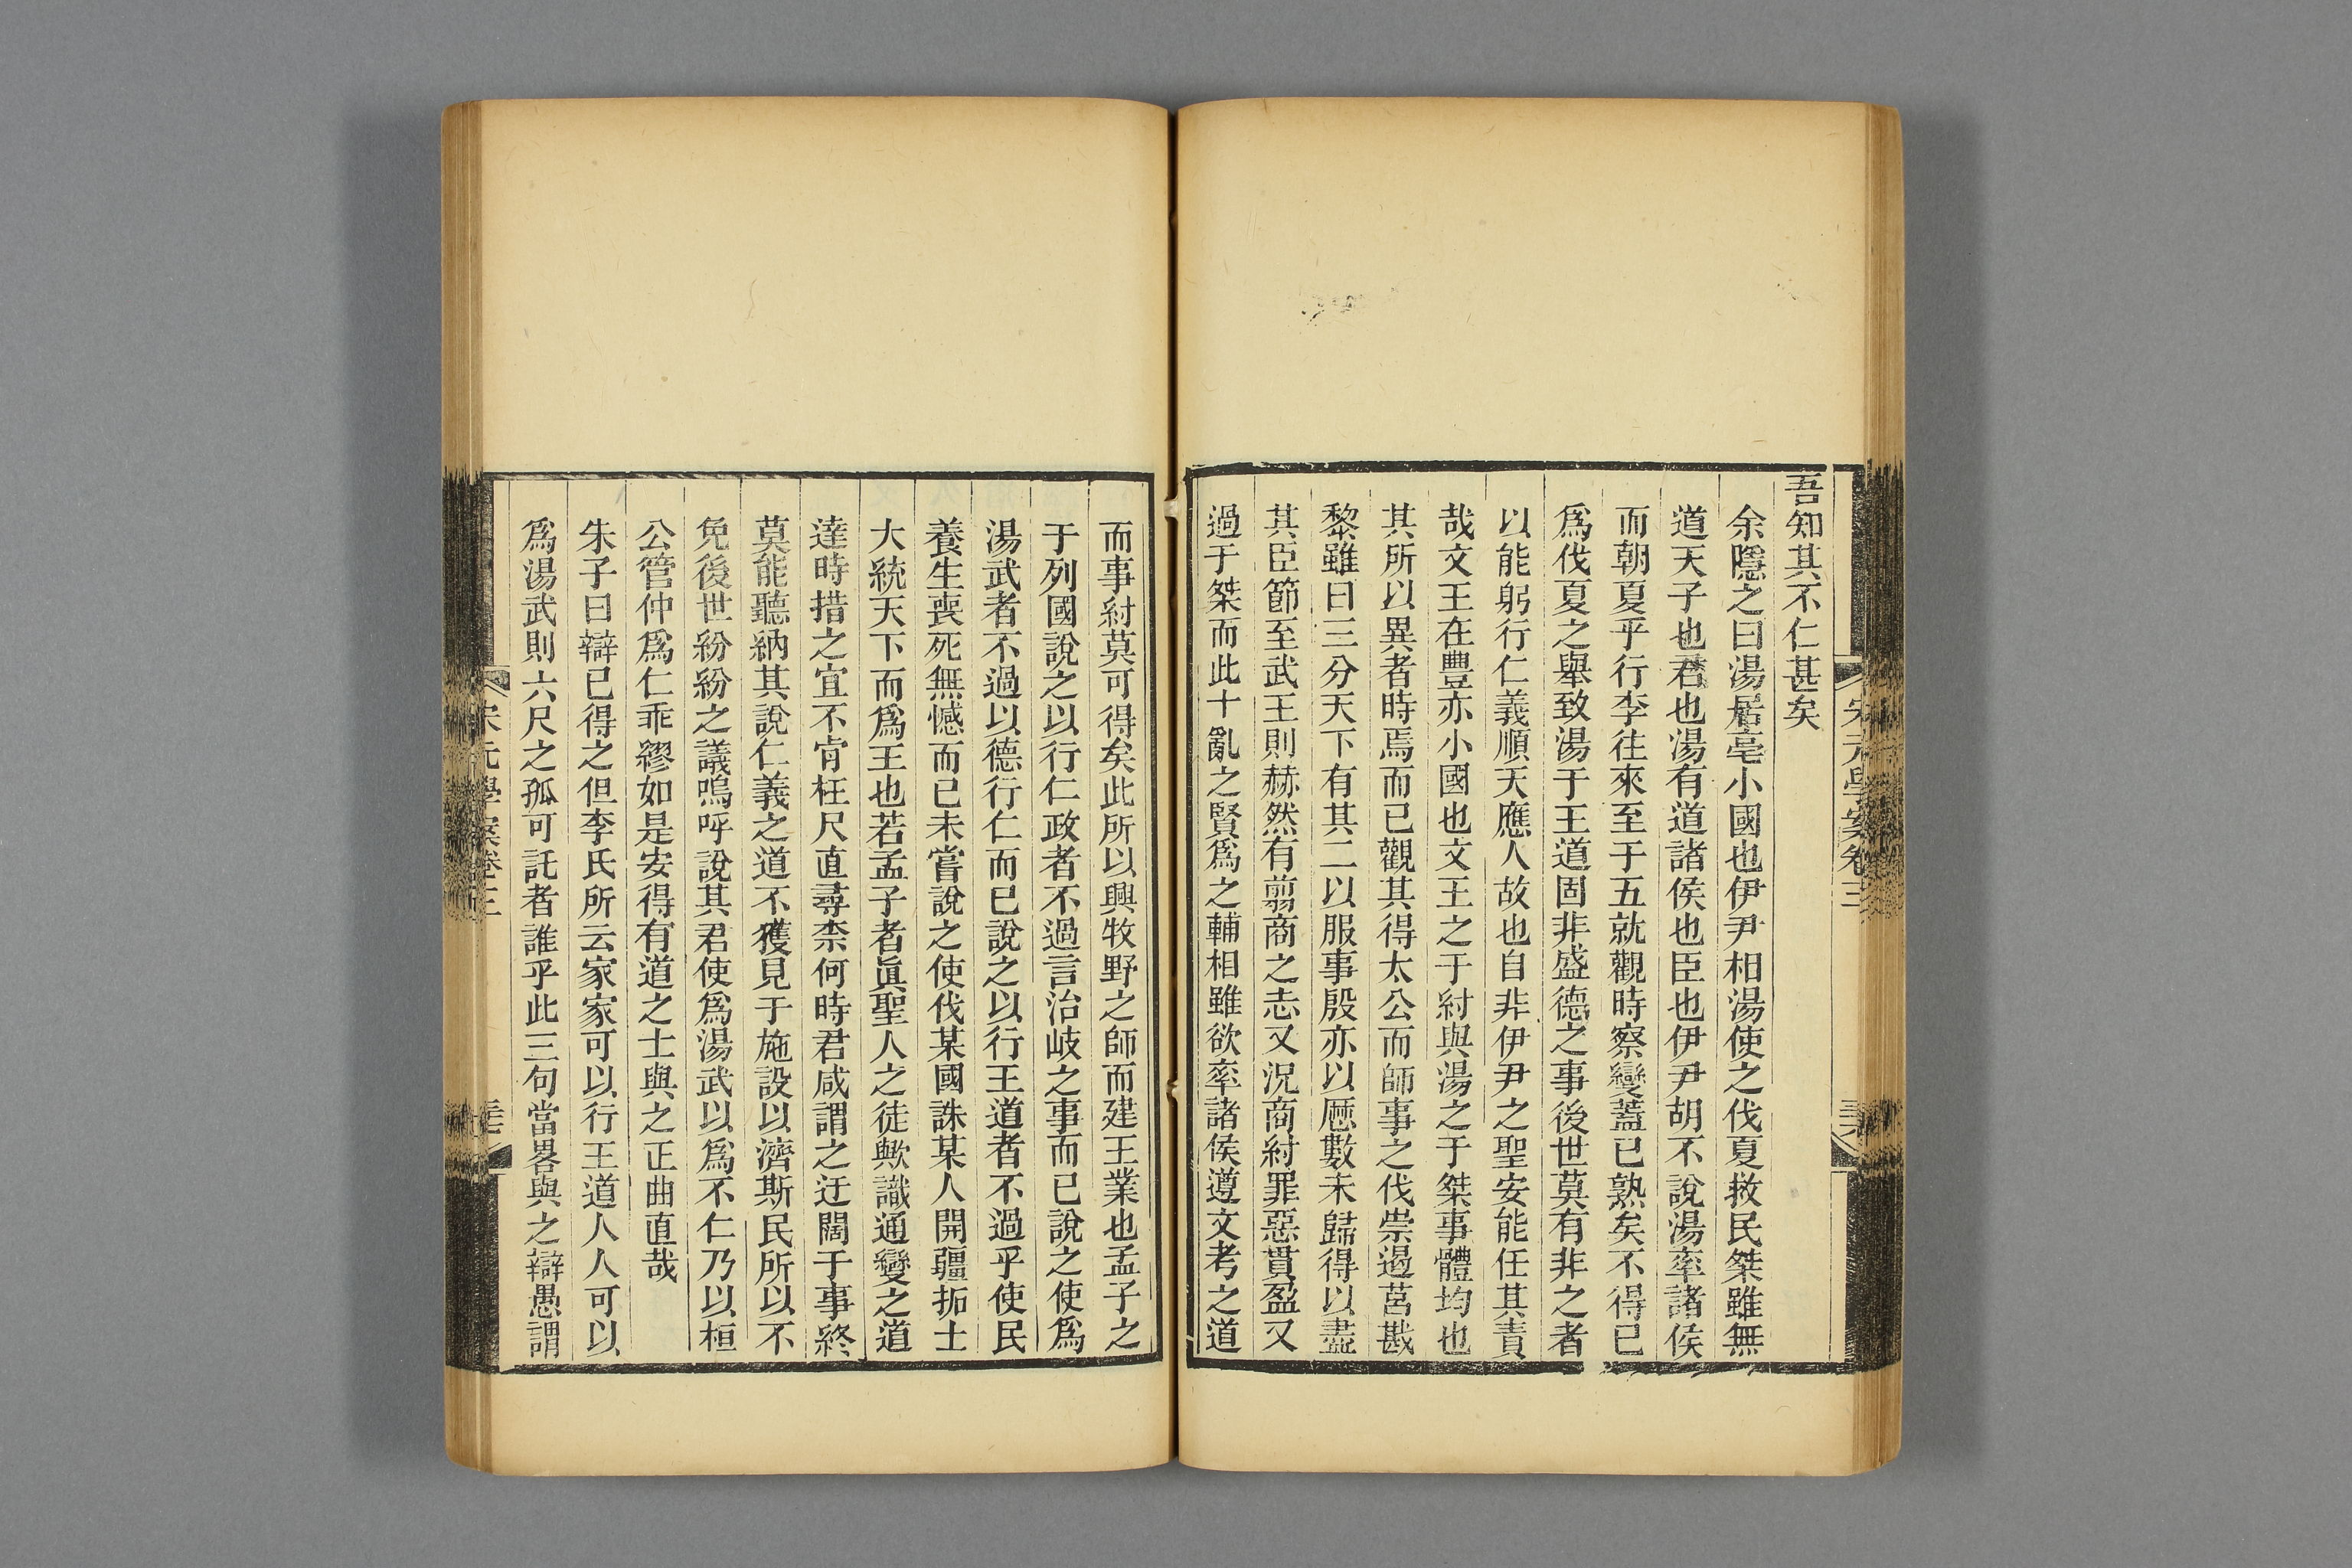 吾知其不仁甚矣
余隱之曰湯居亳小國也伊尹相湯使之伐夏救民桀雖無
道天子也君也湯有道諸侯也臣也伊尹胡不說湯率諸侯
而朝夏乎行李往來至于五就觀時察變蓋已熟矣不得已
爲伐夏之舉致湯于王道固非盛德之事後世莫有非之者
以能躬行仁義順天應人故也自非伊尹之聖安能任其責
哉文王在豐亦小國也文王之于紂與湯之于桀事體均也
其所以異者時焉而已觀其得太公而師事之伐崇遏莒戡
黎雖曰三分天下有其二以服事殷亦以厯數未歸得以盡
其臣節至武王則赫然有翦商之志又況商紂罪惡貫盈又
過于桀而此十亂之賢爲之輔相雖欲率諸侯遵文考之道
而事紂莫可得矣此所以興牧野之師而建王業也孟子之
于列國說之以行仁政者不過言治岐之事而已說之使爲
湯武者不過以德行仁而已說之以行王道者不過乎使民
養生喪死無憾而已未嘗說之使伐某國誅某人開疆拓土
大統天下而爲王也若孟子者眞聖人之徒歟識通變之道
達時措之宜不肯枉尺直尋柰何時君咸謂之迂闊于事終
莫能聽納其說仁義之道不獲見于施設以濟斯民所以不
免後世紛紛之議嗚呼說其君使爲湯武以爲不仁乃以桓
公管仲爲仁乖繆如是安得有道之士與之正曲直哉
朱子曰辯已得之但李氏所云家家可以行王道人人可以
爲湯武則六尺之孤可託者誰乎此三句當畧與之辯愚謂
宋元學案卷三